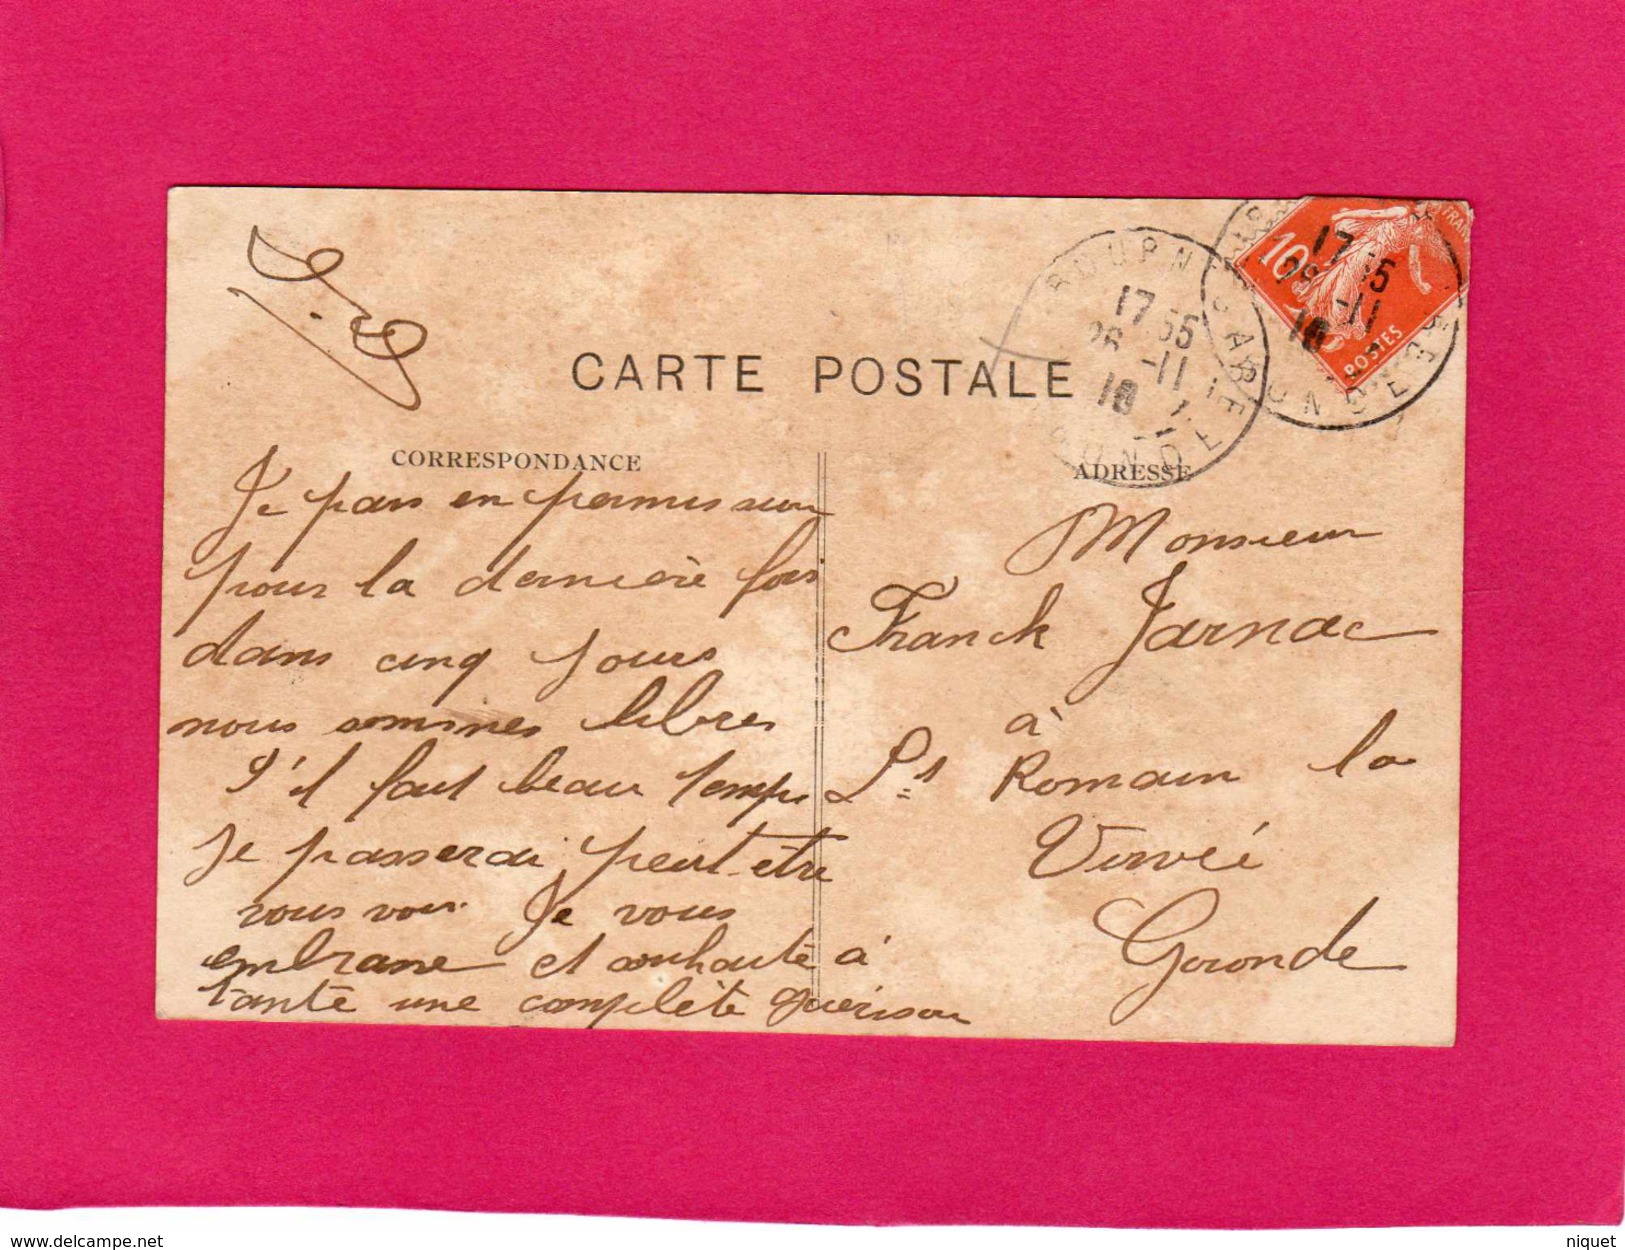 CARTE POSTALE
CORRESPONDANCE
Je pars en permission
pour la dernière fois
dans cinq jours
nous sommes libres
S'il fait beau temps
je passerai peut être
vous voir. Je vous
embrasse et souhaite à
tante une complète guérison
ADRESSE
Monsieur
Franck Jarnac
à
St Romain la
Virvée
Gironde
17 55
26 -11
10
GIRONDE
10
POSTES
17 55
-11
10
www.delcampe.net
niquet